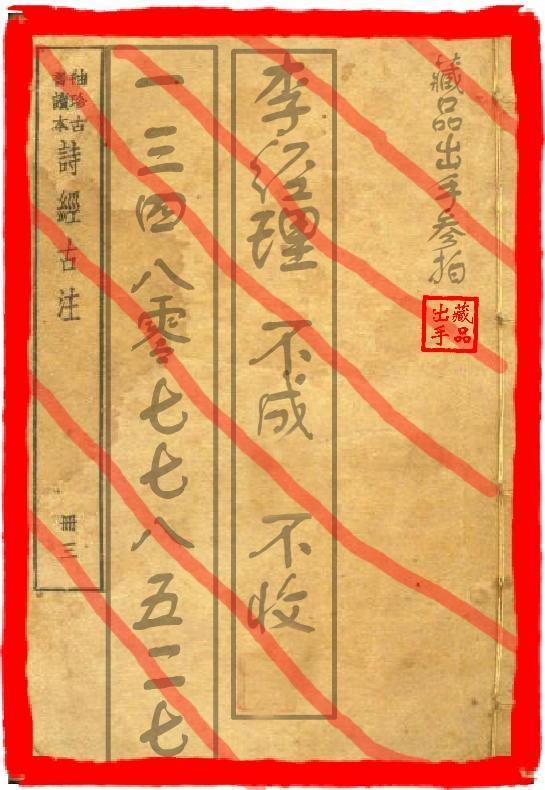 藏品出手参拍
藏品
出手
李经理 不成 不收
一三四八零七七八五二七
袖珍古
書讀本
詩經古注
冊三